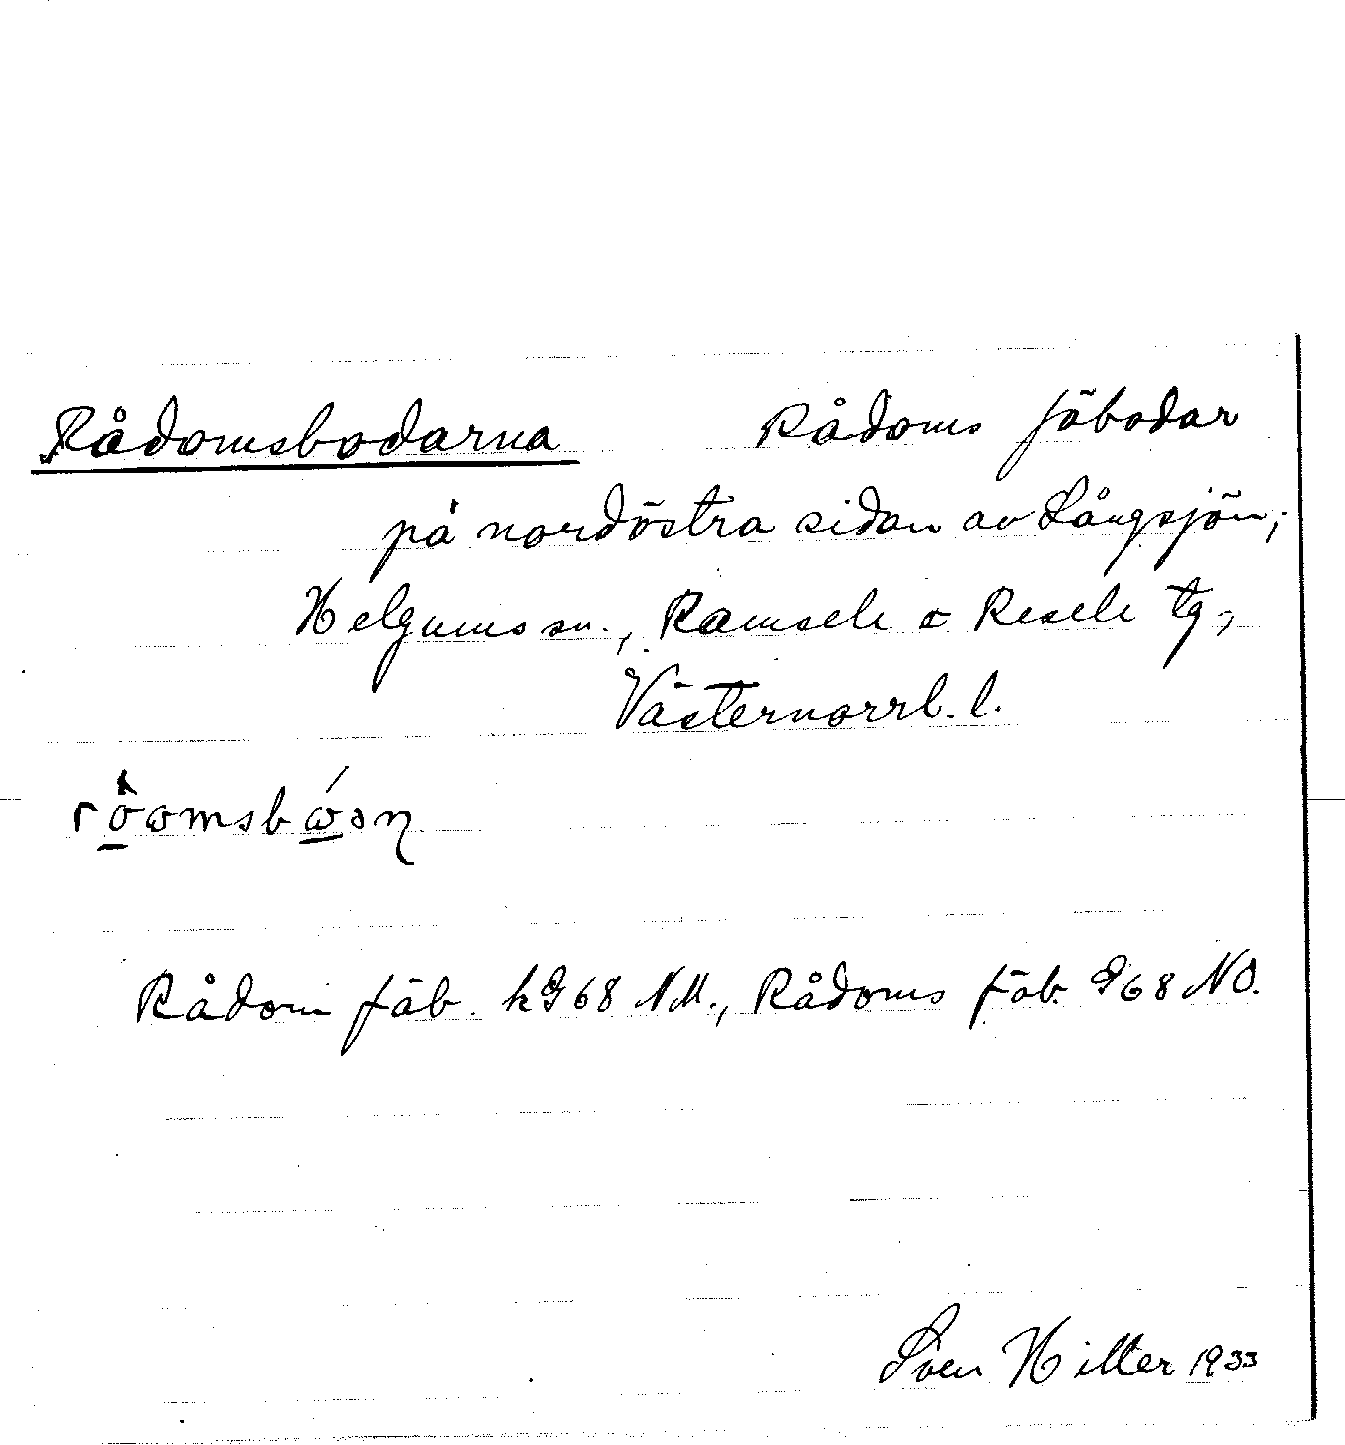 Rådomsbodarna Rådoms fäbodar
på nordöstra sidan av Långsjön;
Helgums sn., Ramsele o Resele tg,
Västernorrl. l.
Rådom fäb. kG 68 NM., Rådoms fäb. G 68 NO.
Sven Hiller 1933